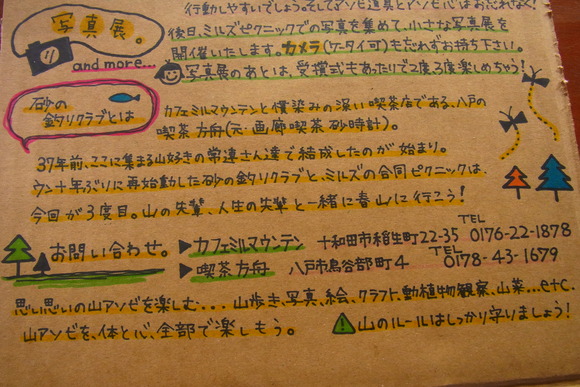 行動しやすいでしょう。そしてアソビ道具とアソビ心はお忘れなく!
写真展。
and more...
後日、ミルズピクニックでの写真を集めて、小さな写真展を
開催いたします。カメラ(ケータイ可)も忘れずお持ち下さい。
写真展のあとは、受攪式もあったりで2度、3度楽しめちゃう!
砂の
釣りクラブとは
カフェミルマウンテンと慣染みの深い喫茶店である、八戸の
喫茶 方舟(元・画廊喫茶 砂時計)。
37年前、ここに集まる山好きの常連さん達で結成したのが始まり。
ウン十年ぶりに再始動した砂の釣りクラブと、ミルズの合同ピクニックは、
今回が3度目。山の先輩、人生の先輩と一緒に春山に行こう!
お問い合わせ。
▶カフェミルマウンテン 十和田市稲生町22-35 TEL 0176-22-1878
▶喫茶 方舟 八戸市鳥谷部町4 TEL 0178-43-1679
思い思いの山アソビを楽しむ... 山歩き、写真、絵、クラフト、動植物観察、山菜...etc.
山アソビを、体と心、全部で楽しもう。
山のルールはしっかり守りましょう!